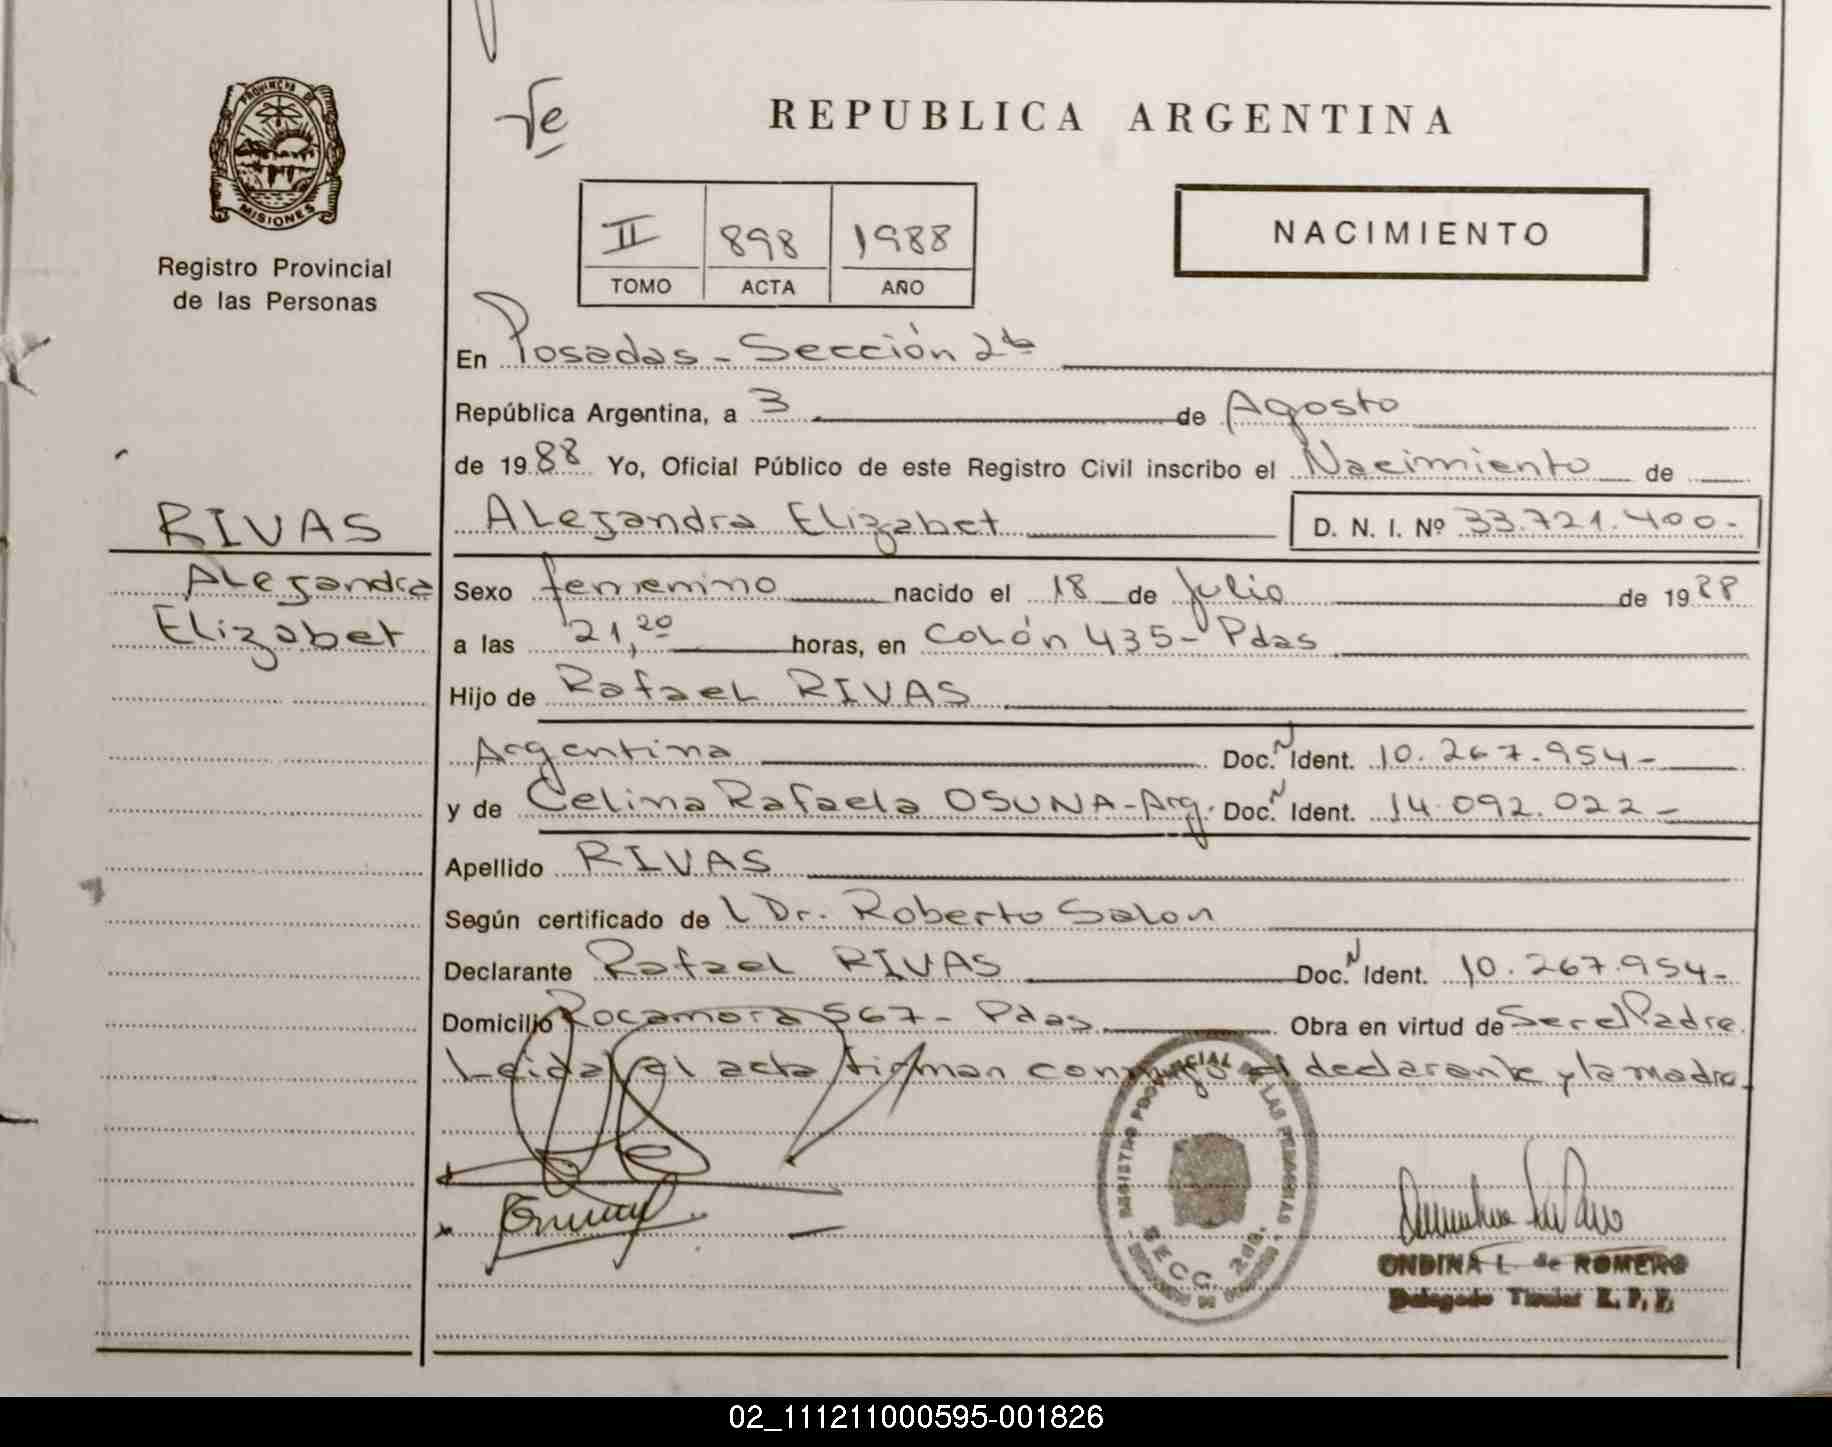 PROVINCIA DE
MISIONES
Registro Provincial
de las Personas
REPUBLICA ARGENTINA
II 898 1988
TOMO ACTA AÑO
NACIMIENTO
En Posadas - Sección 2da
República Argentina, a 3 de Agosto
de 1988 Yo, Oficial Público de este Registro Civil inscribo el Nacimiento de
RIVAS
Alejandra
Elizabet
Alejandra Elizabet D. N. I. Nº 33.721.400-
Sexo femenino nacido el 18 de Julio de 1988
a las 21,20 horas, en Colón 435- Pdas
Hijo de Rafael RIVAS
Argentina Doc. N Ident. 10.267.954-
y de Celina Rafaela OSUNA-Arg. Doc. N Ident. 14.092.022-
Apellido RIVAS
Según certificado de l Dr. Roberto Salon
Declarante Rafael RIVAS Doc. N Ident. 10.267.954-
Domicilio Rocamora 567- Pdas Obra en virtud de Ser el Padre
Leida el acta firman conmigo el declarante y la madre-
REGISTRO PROVINCIAL DE LAS PERSONAS
SECC. 2da.
ONDINA L. de ROMERO
Delegado Titular R. P. P.
02_111211000595-001826